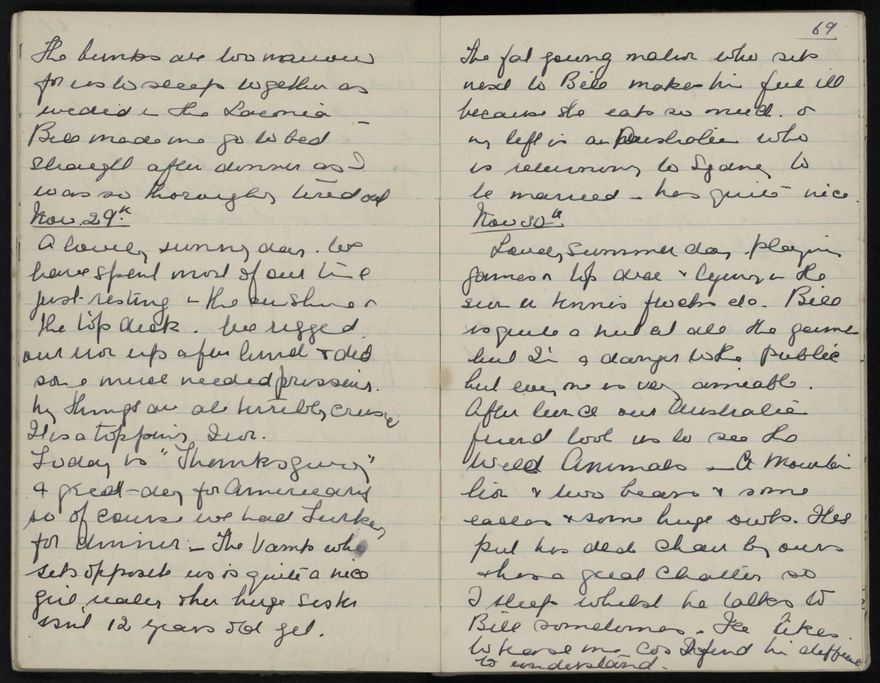 The bunks are too narrow
for us to sleep together as
we did in the Laconia –
Bill made me go to bed
straight after dinner as I
was so thoroughly tired out
Nov. 29th
A lovely sunny day. We
have spent most of our time
just resting in the sunshine on
the top deck. We rigged
our iron up after lunch & did
some much needed pressing.
My things are all terribly crushed
It is a topping Iron.
Today is "Thanksgiving"
a great day for Americans
so of course we had Turkey
for dinner – The Vamp who
sits opposite us is quite a nice
girl really & her huge sister
isn't 12 years old yet.
69
The fat young matron who sits
next to Bill makes him feel ill
because she eats so much. On
my left is an Australian who
is returning to Sydney to
be married – he's quite nice.
Nov 30th
Lovely summer day playing
games on top deck & lying in the
sun in tennis frocks etc. Bill
is quite a nut at all the games
but I'm a danger to the public
but everyone is very amiable.
After lunch our Australian
friend took us to see the
Wild Animals – A Mountain
lion & two bears & some
eagles & some huge owls. He's
put his deck chair by ours
& has a great chatter so
I sleep whilst he talks to
Bill sometimes. He likes
to tease me cos I find him difficult
to understand.